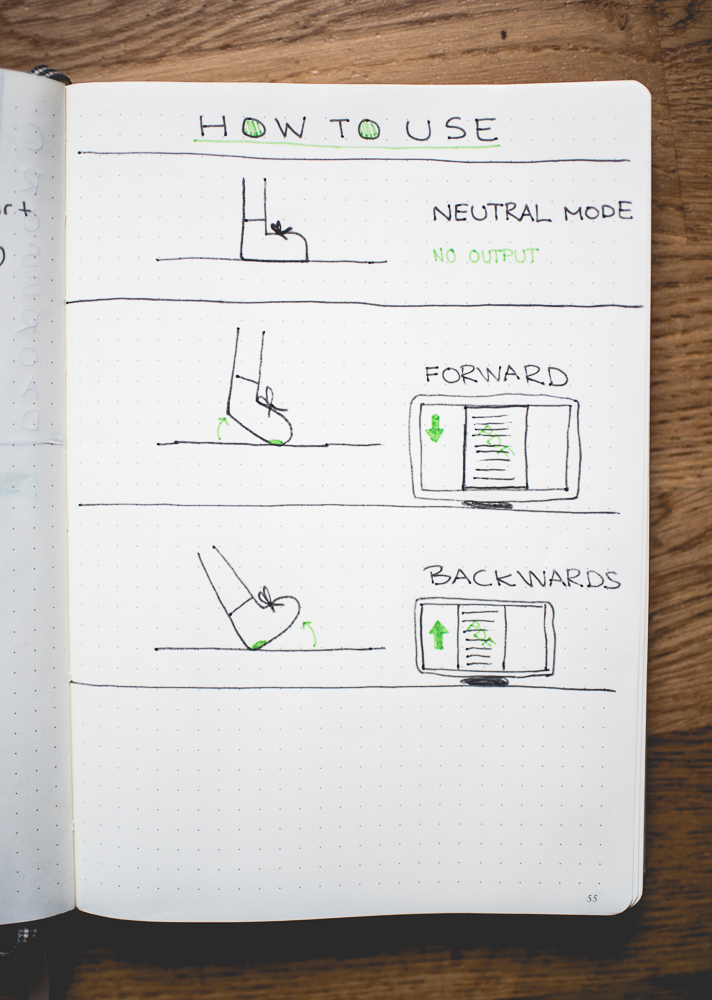 HOW TO USE
NEUTRAL MODE
NO OUTPUT
FORWARD
BACKWARDS
55